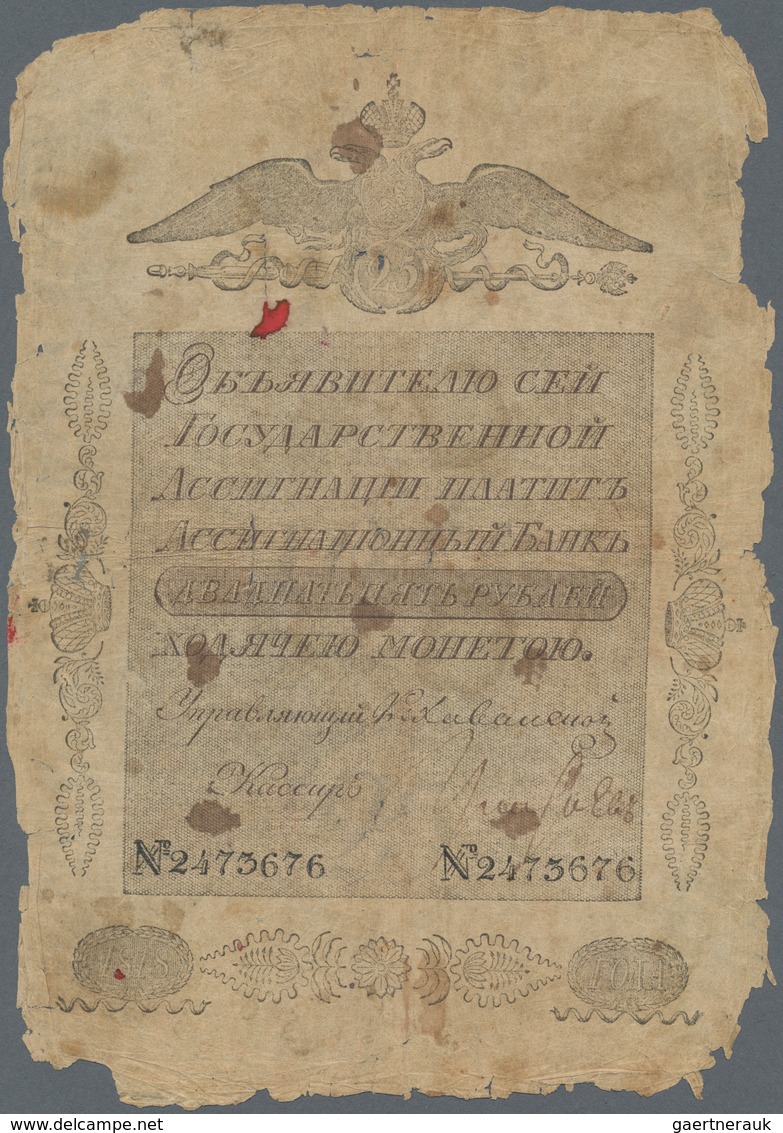 25
Объявителю сей
Государственной
Ассигнации платитъ
Ассигнаціонный Банкъ
Двадцать пять рублей
ходячею монетою.
Управляющій К. Хованской
Кассиръ
№2473676 №2473676
1818 года
delcampe.net
gaertnerauk